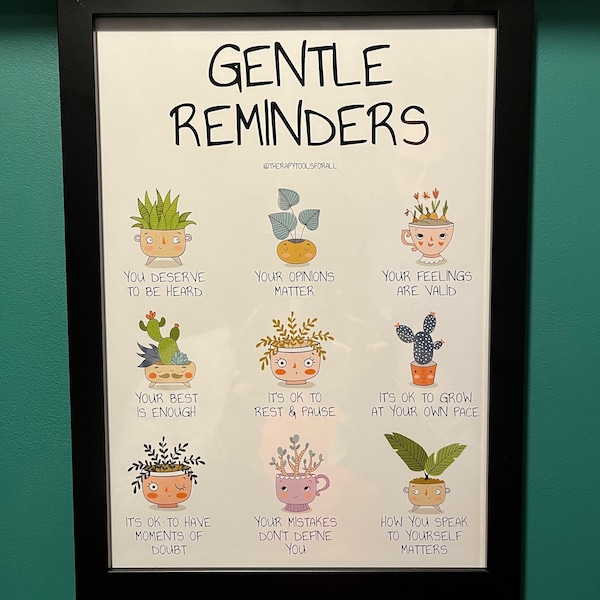 GENTLE
REMINDERS
@THERAPYTOOLSFORALL
YOU DESERVE
TO BE HEARD
YOUR OPINIONS
MATTER
YOUR FEELINGS
ARE VALID
YOUR BEST
IS ENOUGH
IT'S OK TO
REST & PAUSE
IT'S OK TO GROW
AT YOUR OWN PACE
ITS OK TO HAVE
MOMENTS OF
DOUBT
YOUR MISTAKES
DON'T DEFINE
YOU
HOW YOU SPEAK
TO YOURSELF
MATTERS